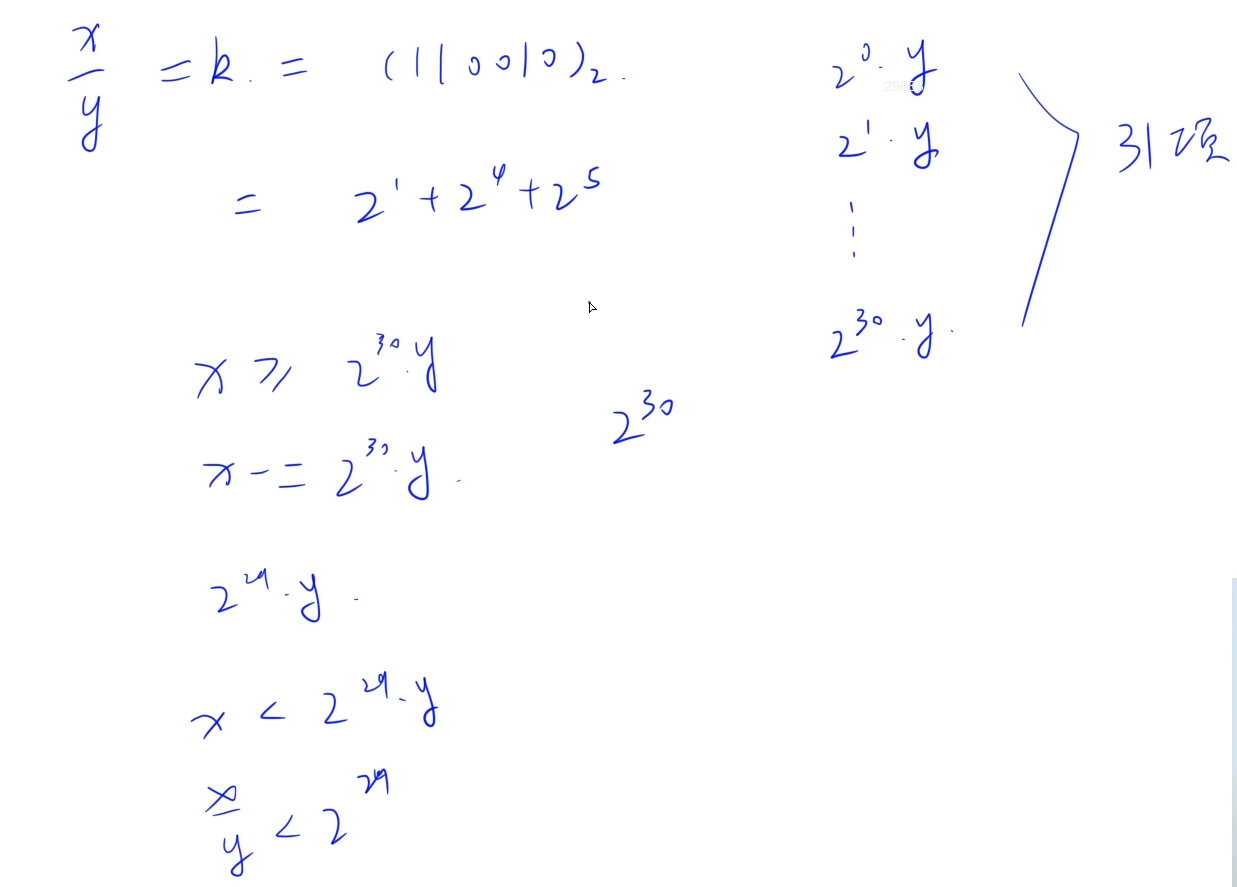 x/y = k. = (110010)₂.
= 2¹ + 2⁴ + 2⁵
x ⩾ 2³⁰·y
x -= 2³⁰·y.
2²⁹·y.
x < 2²⁹·y
x/y < 2²⁹
2³⁰
2⁰·y
2¹·y
⋮
2³⁰·y.
31项